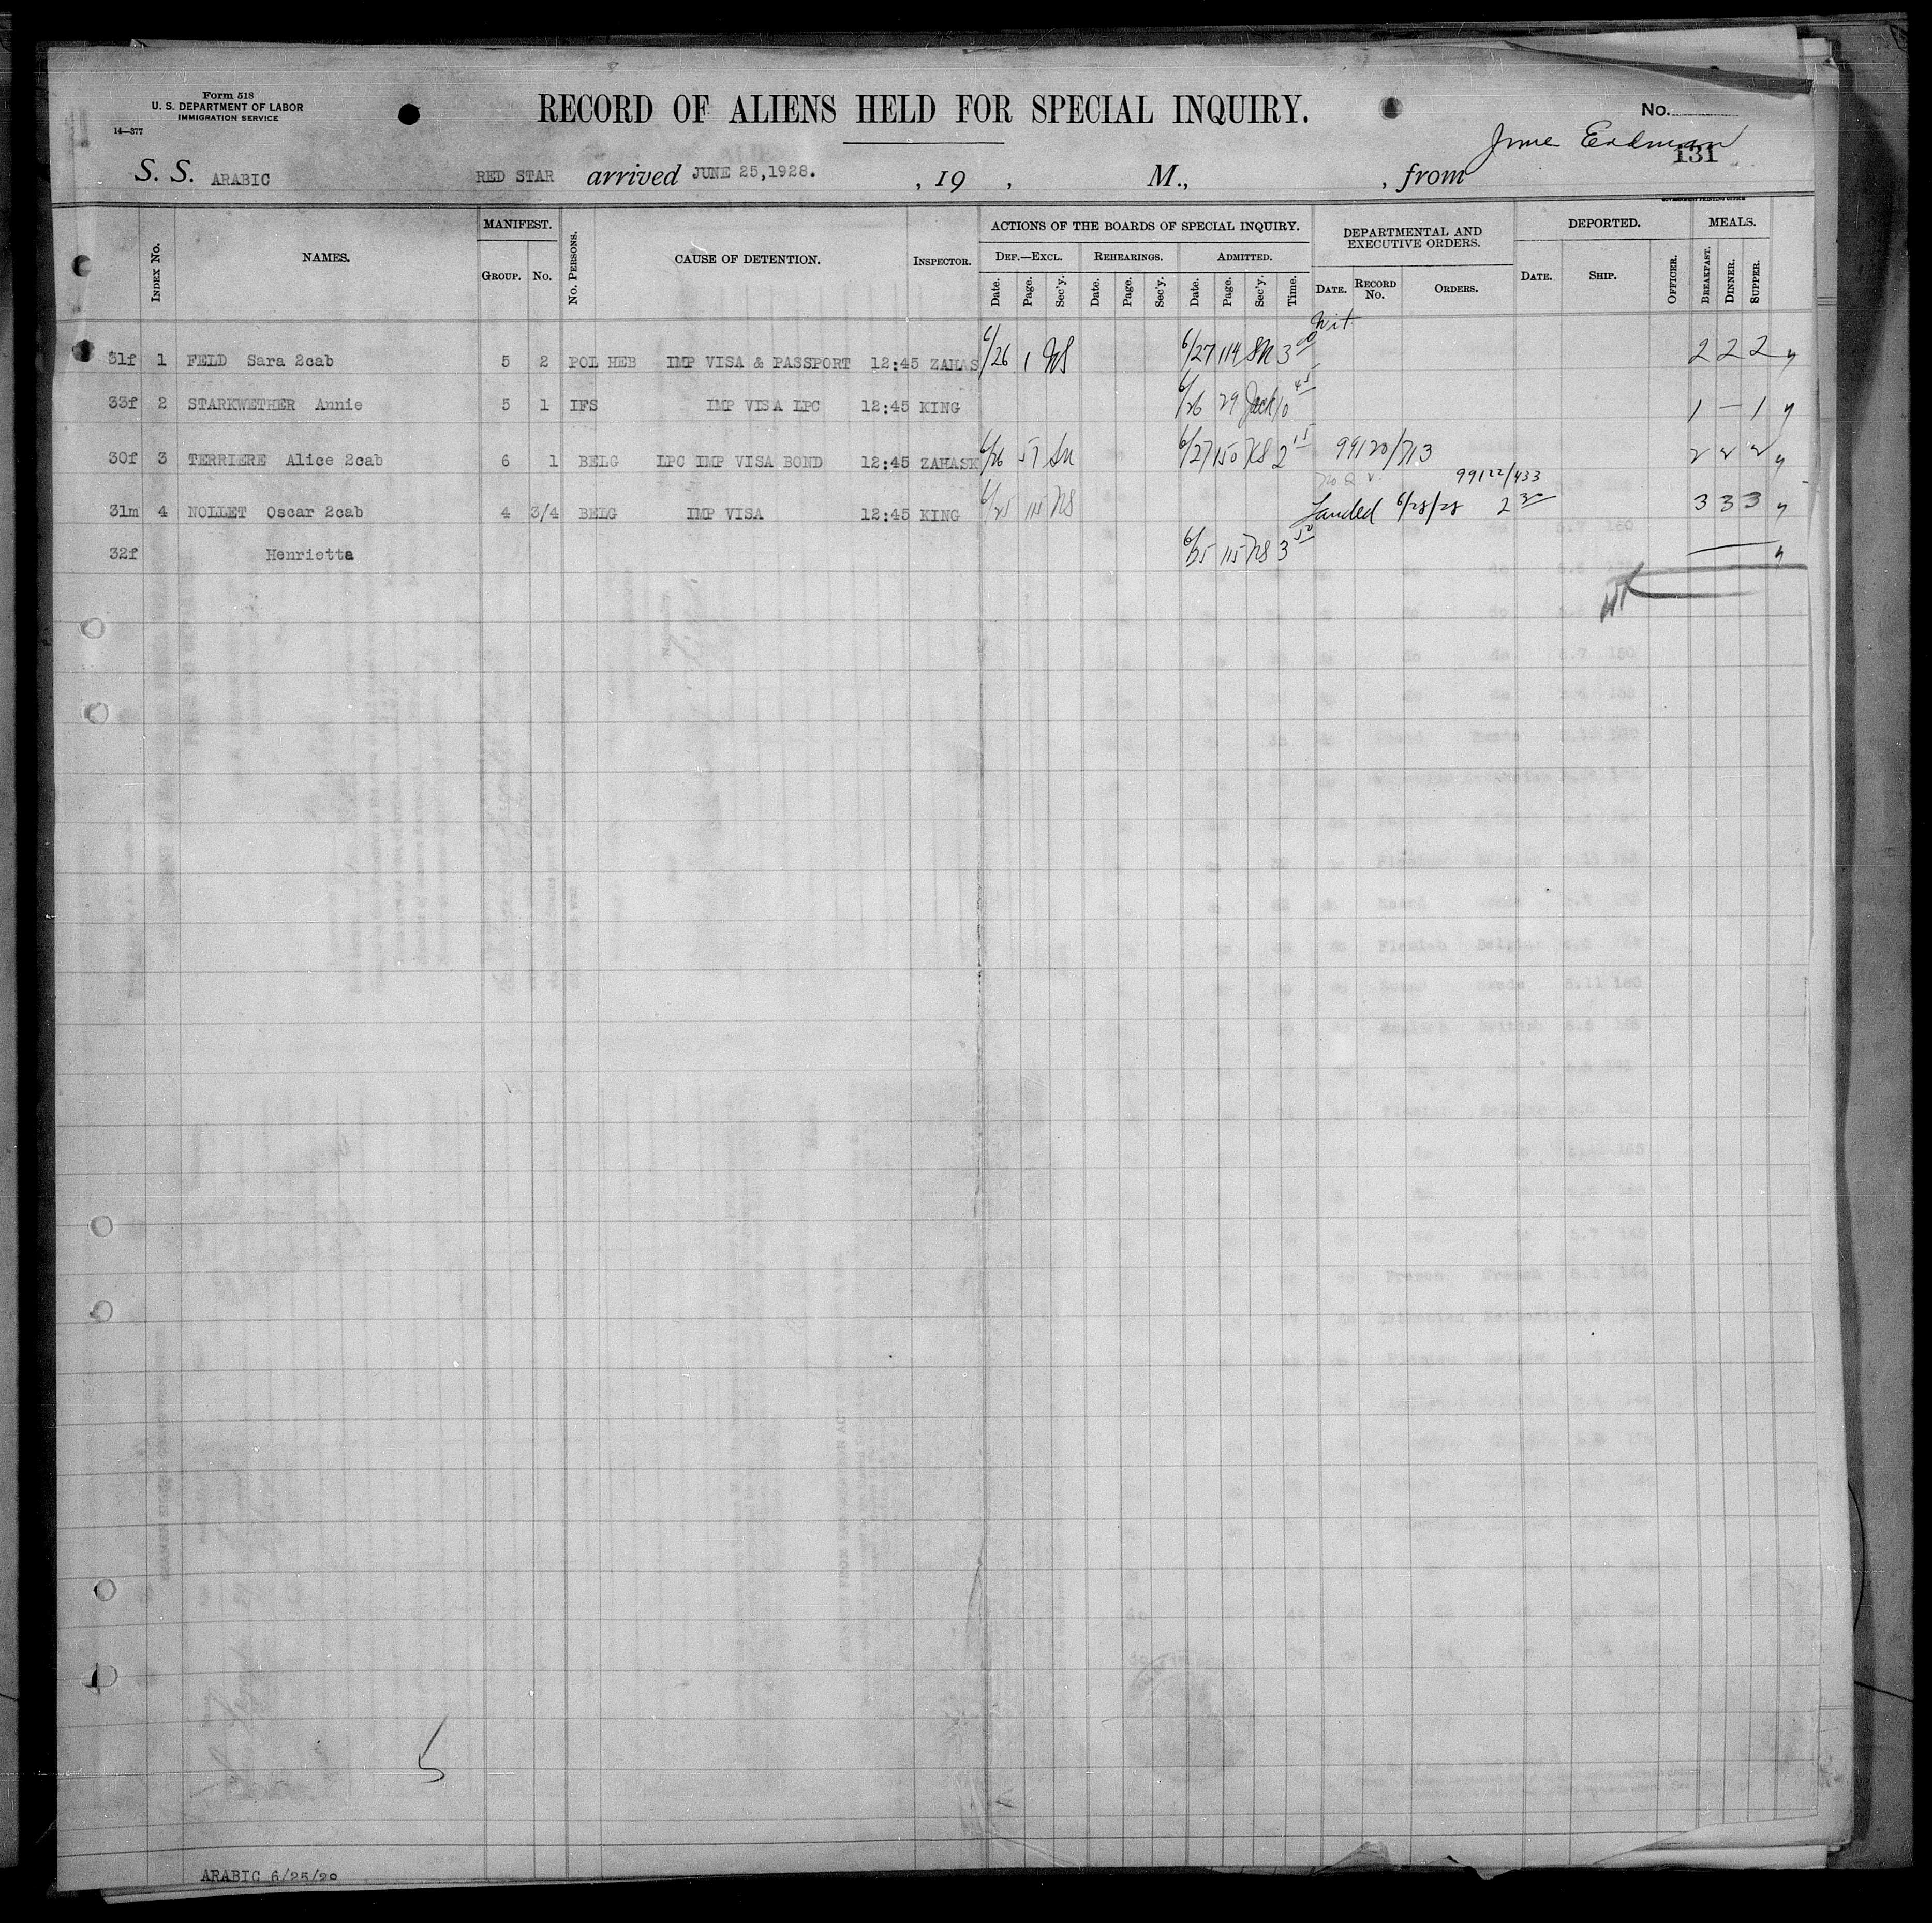 Form 518
U. S. DEPARTMENT OF LABOR
IMMIGRATION SERVICE
14—377
RECORD OF ALIENS HELD FOR SPECIAL INQUIRY.
No.
131
S. S. ARABIC RED STAR arrived JUNE 25,1928. , 19 , M., , from
GOVERNMENT PRINTING OFFICE
Index No. NAMES. MANIFEST. Group. No. No. Persons. CAUSE OF DETENTION. Inspector. ACTIONS OF THE BOARDS OF SPECIAL INQUIRY. DEPARTMENTAL AND EXECUTIVE ORDERS. DEPORTED. MEALS.
Def.—Excl. Rehearings. Admitted.
Date. Page. Sec'y. Date. Page. Sec'y. Date. Page. Sec'y. Time. Date. Record No. Orders. Date. Ship. Officer. Breakfast. Dinner. Supper.
31f 1 FELD Sara 2cab 5 2 POL HEB IMP VISA & PASSPORT 12:45 ZAHAS 6/26 1 6/27 114 SN 3 00 2 2 2
33f 2 STARKWETHER Annie 5 1 IFS IMP VISA LPC 12:45 KING 6/26 29 Jack 10 45 1 — 1
30f 3 TERRIERE Alice 2cab 6 1 BELG LPC IMP VISA BOND 12:45 ZAHASK 6/26 57 SN 6/27 150 NS 2 15 99120/713 2 2 2
99122/433
31m 4 NOLLET Oscar 2cab 4 3/4 BELG IMP VISA 12:45 KING 6/25 115 NS Landed 6/28/28 2 30 3 3 3
32f Henrietta 6/25 115 NS 3 50
5
ARABIC 6/25/28